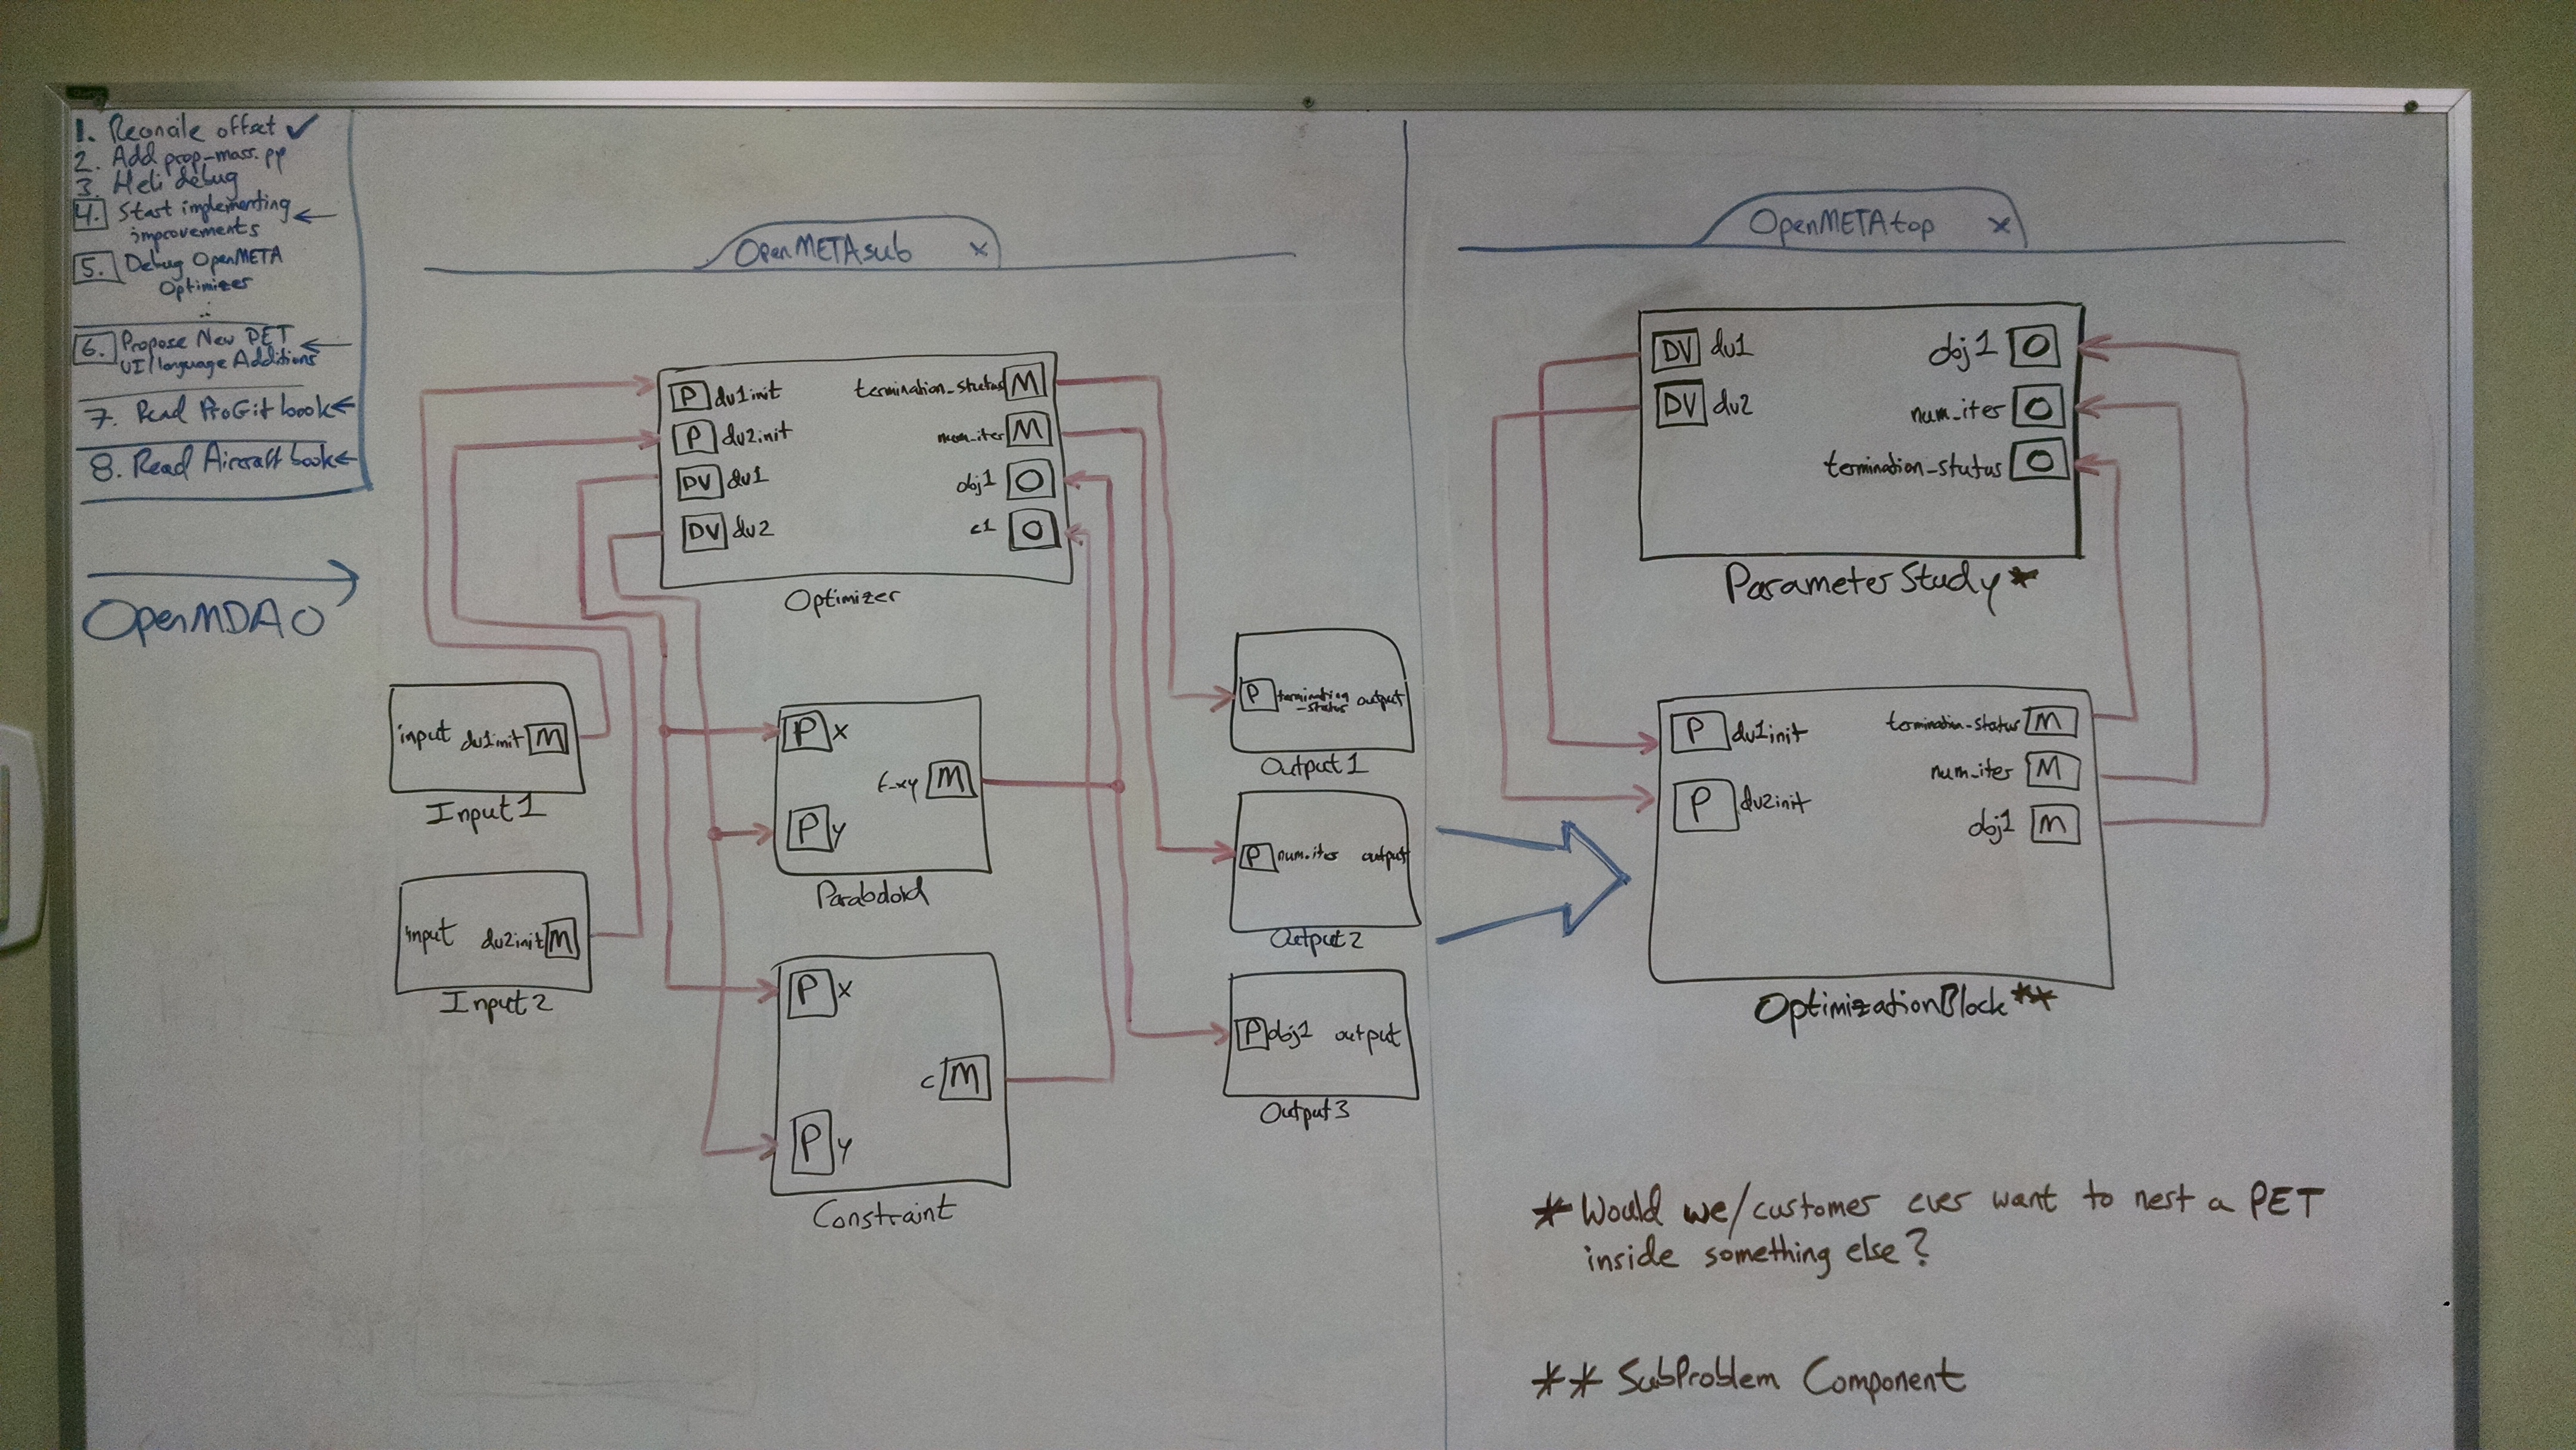 1. Reconcile offset ✓
2. Add prop-mass.py
3. Heli debug
4. Start implementing ←
improvements
5. Debug OpenMETA
Optimizer
6. Propose New PET ←
UI/language Additions
7. Read ProGit book ←
8. Read Aircraft book ←
OpenMDAO
OpenMETAsub x
P dv1init termination_status M
P dv2init num_iter M
DV dv1 obj1 O
DV dv2 c1 O
Optimizer
input dv1init M
Input1
input dv2init M
Input2
P x
f_xy M
P y
Paraboloid
P x
c M
P y
Constraint
P termination output
_status
Output1
P num_iter output
Output2
P obj1 output
Output3
OpenMETAtop x
DV dv1 obj1 O
DV dv2 num_iter O
termination_status O
ParameterStudy*
P dv1init termination_status M
num_iter M
P dv2init
obj1 M
OptimizationBlock**
* Would we/customer ever want to nest a PET
inside something else?
** SubProblem Component